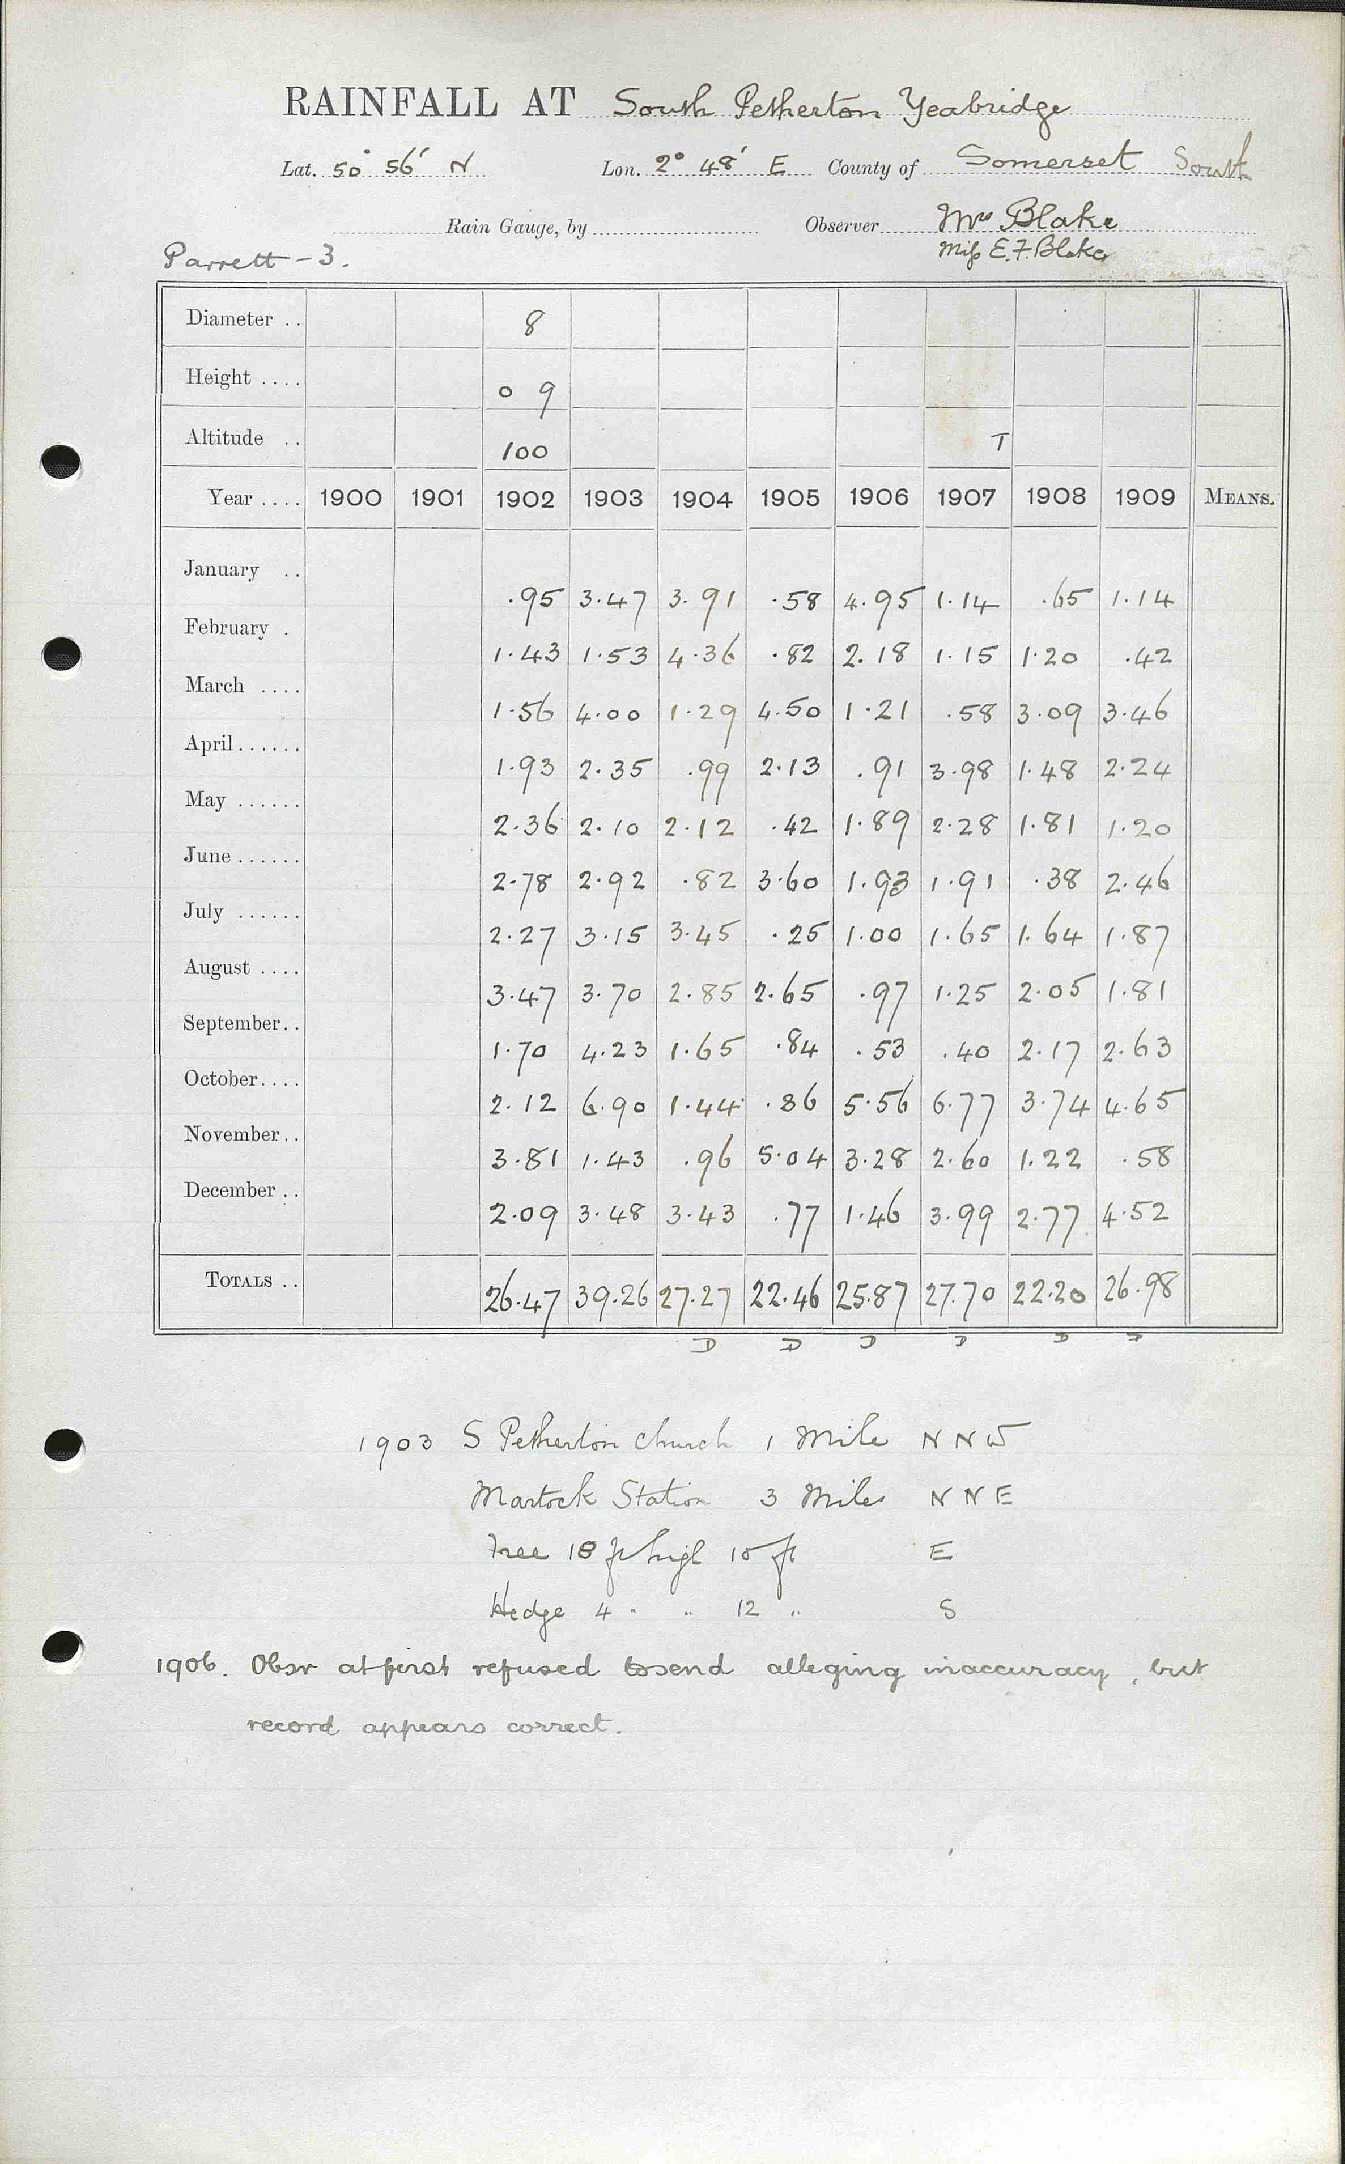 RAINFALL AT South Petherton Yeabridge
Lat. 50° 56' N Lon. 2° 48' E County of Somerset South
Rain Gauge, by Observer Mrs Blake
Parrett - 3. Miss E. F. Blake
Diameter .. 8
Height .... 0 9
Altitude .. 100 T
Year .... 1900 1901 1902 1903 1904 1905 1906 1907 1908 1909 MEANS.
January .. .95 3.47 3.91 .58 4.95 1.14 .65 1.14
February . 1.43 1.53 4.36 .82 2.18 1.15 1.20 .42
March .... 1.56 4.00 1.29 4.50 1.21 .58 3.09 3.46
April...... 1.93 2.35 .99 2.13 .91 3.98 1.48 2.24
May ...... 2.36 2.10 2.12 .42 1.89 2.28 1.81 1.20
June...... 2.78 2.92 .82 3.60 1.93 1.91 .38 2.46
July ...... 2.27 3.15 3.45 .25 1.00 1.65 1.64 1.87
August .... 3.47 3.70 2.85 2.65 .97 1.25 2.05 1.81
September.. 1.70 4.23 1.65 .84 .53 .40 2.17 2.63
October.... 2.12 6.90 1.44 .86 5.56 6.77 3.74 4.65
November.. 3.81 1.43 .96 5.04 3.28 2.60 1.22 .58
December .. 2.09 3.48 3.43 .77 1.46 3.99 2.77 4.52
TOTALS .. 26.47 39.26 27.27 22.46 25.87 27.70 22.20 26.98
D D D D D D
1903 S Petherton Church 1 Mile N N W
Martock Station 3 Miles N N E
Tree 18 ft high 15 ft E
Hedge 4 " " 12 " S
1906. Obsr at first refused to send alleging inaccuracy, but
record appears correct.